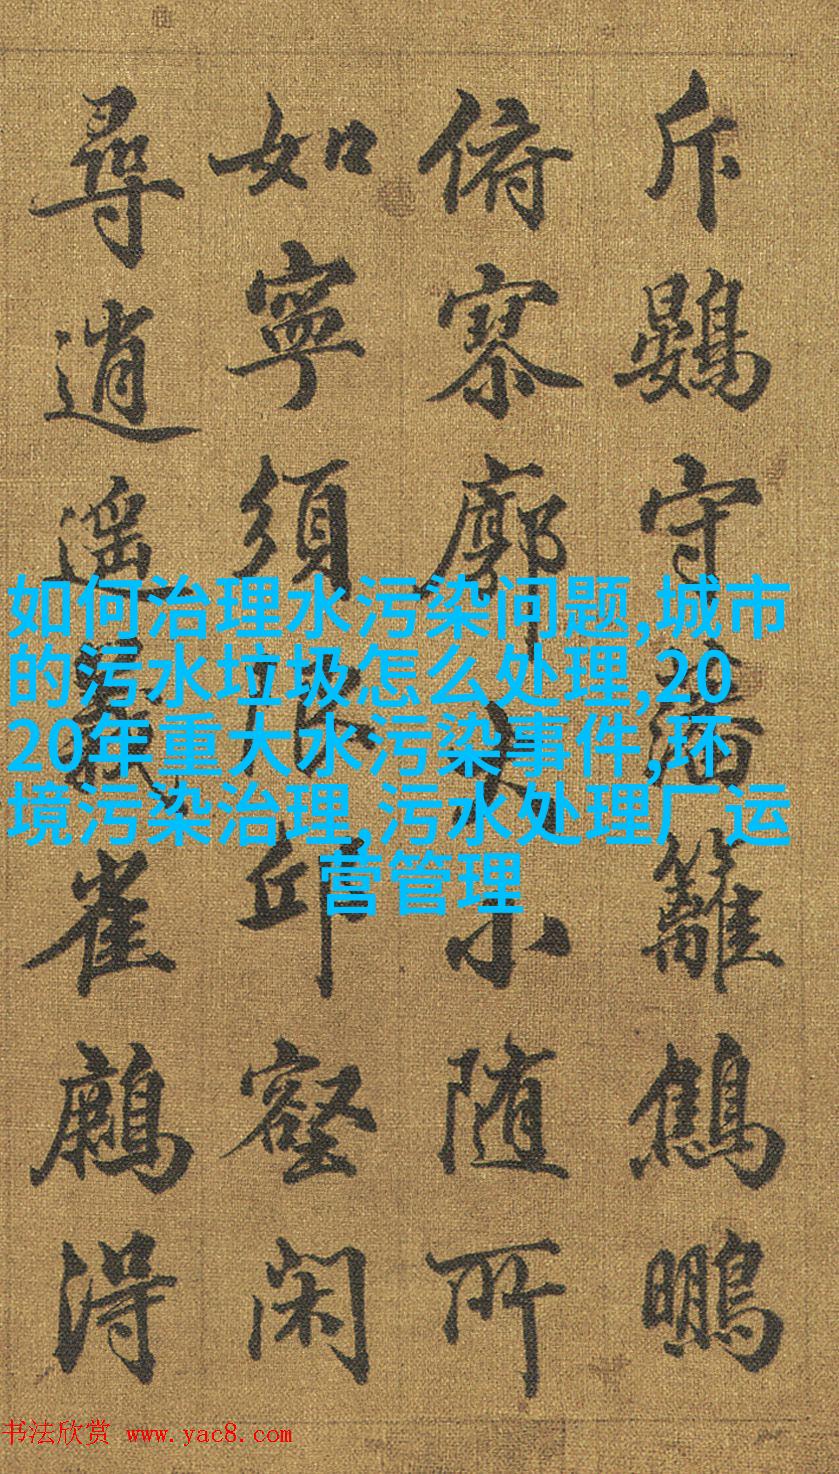 斥鷃守藩籬鷦鵬
俯寥廓大小随所
如寧須作邱壑閑
尋逍遥雀得
如何治理水污染问题,城市
的污水垃圾怎么处理,20
20年重大水污染事件,环
境污染治理,污水处理厂运
营管理
书法欣赏 www.yac8.com